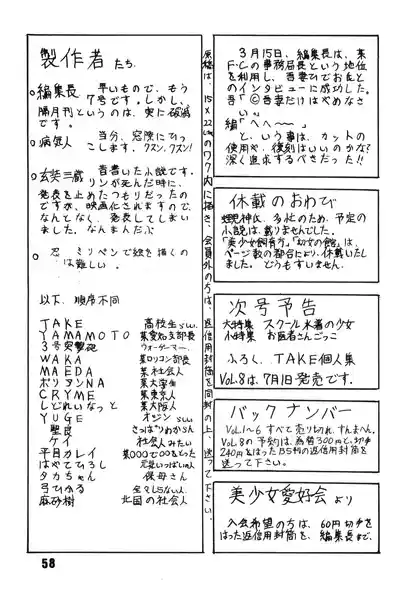 製作者たち
編集長 早いもので、もう
7号です。しかし、
隔月刊というのは、実に破滅
です。
病健人 当分、窓際にひっ
こします、クスン!クスン!
玄奘三蔵 昔書いた小説です。
リンが死んだ時に、
発表を止めたつもりだったの
ですが、映画化されますので、
なんとなく、発表してしまい
ました。なんまんだぶ
忍 ミリペンで絵を描くの
は難しい。
以下、順序不同
TAKE 高校生
YAMAMOTO 某愛知支部長
3号突撃砲 ウォーゲーマー
WAKA 某ロリコン部長
MAEDA 某社会人
ポリアンNA 某大学生
CRYME 某東京人
しどれいなっと 某大阪人
YUGE オジン
聖良 さっぱりわからん
ケイ 社会人みたい
平目カレイ 某○○○で○○をとった
はやてひろし 元気いっぱい人
タカちゃん 保母さん
弓ひゆる 全々しらない人
麻砂樹 北国の社会人
原稿は、15×22cmのワク内に描き、会員外の方は、返信用封筒を同封の上、送って下さい。
3月15日、編集長は、某
F・Cの事務局長という地位
を利用し、吾妻ひでお氏と
のインタビューに成功した。
吾「©吾妻だけはやめなさ
い。」
編「へへ〜〜」
と、いう事は、カットの
使用や、復刻はいいのかな?
深く追求するべきだった!!
休載のおわび
蝦蟇神氏、多忙のため、予定の
小説は、載りませんでした。
「美少女飼育方」「幼女の館」は、
ページ数の都合により、休載いたし
ました。どうもすいません。
次号予告
大特集 スクール水着の少女
小特集 お医者さんごっこ
ふろく、TAKE個人集
Vol.8は、7月1日発売です。
バックナンバー
Vol.1〜6 すべて売り切れ、すんません。
Vol.8の予約は、為替300円と、切手
240円をはったB5判の返信用封筒を
送って下さい。
美少女愛好会より
入会希望の方は、60円切手を
はった返信用封筒を、編集長まで。
58